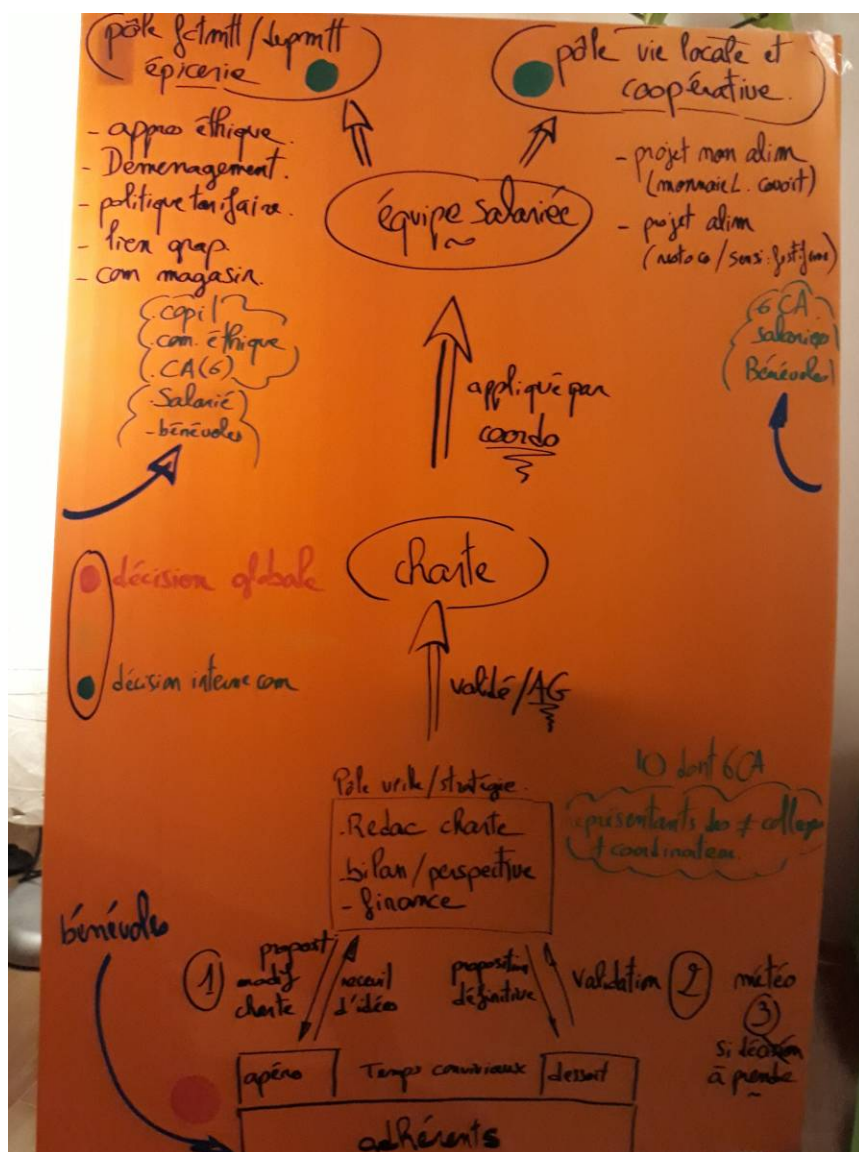 pôle fctmtt/dvpmtt
épicerie
- appro éthique.
- Démenagement.
- politique tarifaire.
- lien grap.
- com magasin.
.copil
.com. éthique
.CA(6)
.Salarié
-bénévoles
pôle vie locale et
coopérative.
- projet non alim
(monnaie L. covoit)
- projet alim
6 CA
Salariés
Bénévoles
équipe salariée
appliqué par
coordo
charte
décision globale
décision interne com
validé/AG
Pôle veille/stratégie.
.Redac charte
-bilan/perspective
- finance
10 dont 6CA
représentants des ≠ collèges
+ coordinateur.
bénévoles
1
propost
modif
charte
receuil
d'idées
proposition
définitive
validation
2
météo
3
si décision
à prendre
apéro
Temps conviviaux
dessert
adhérents